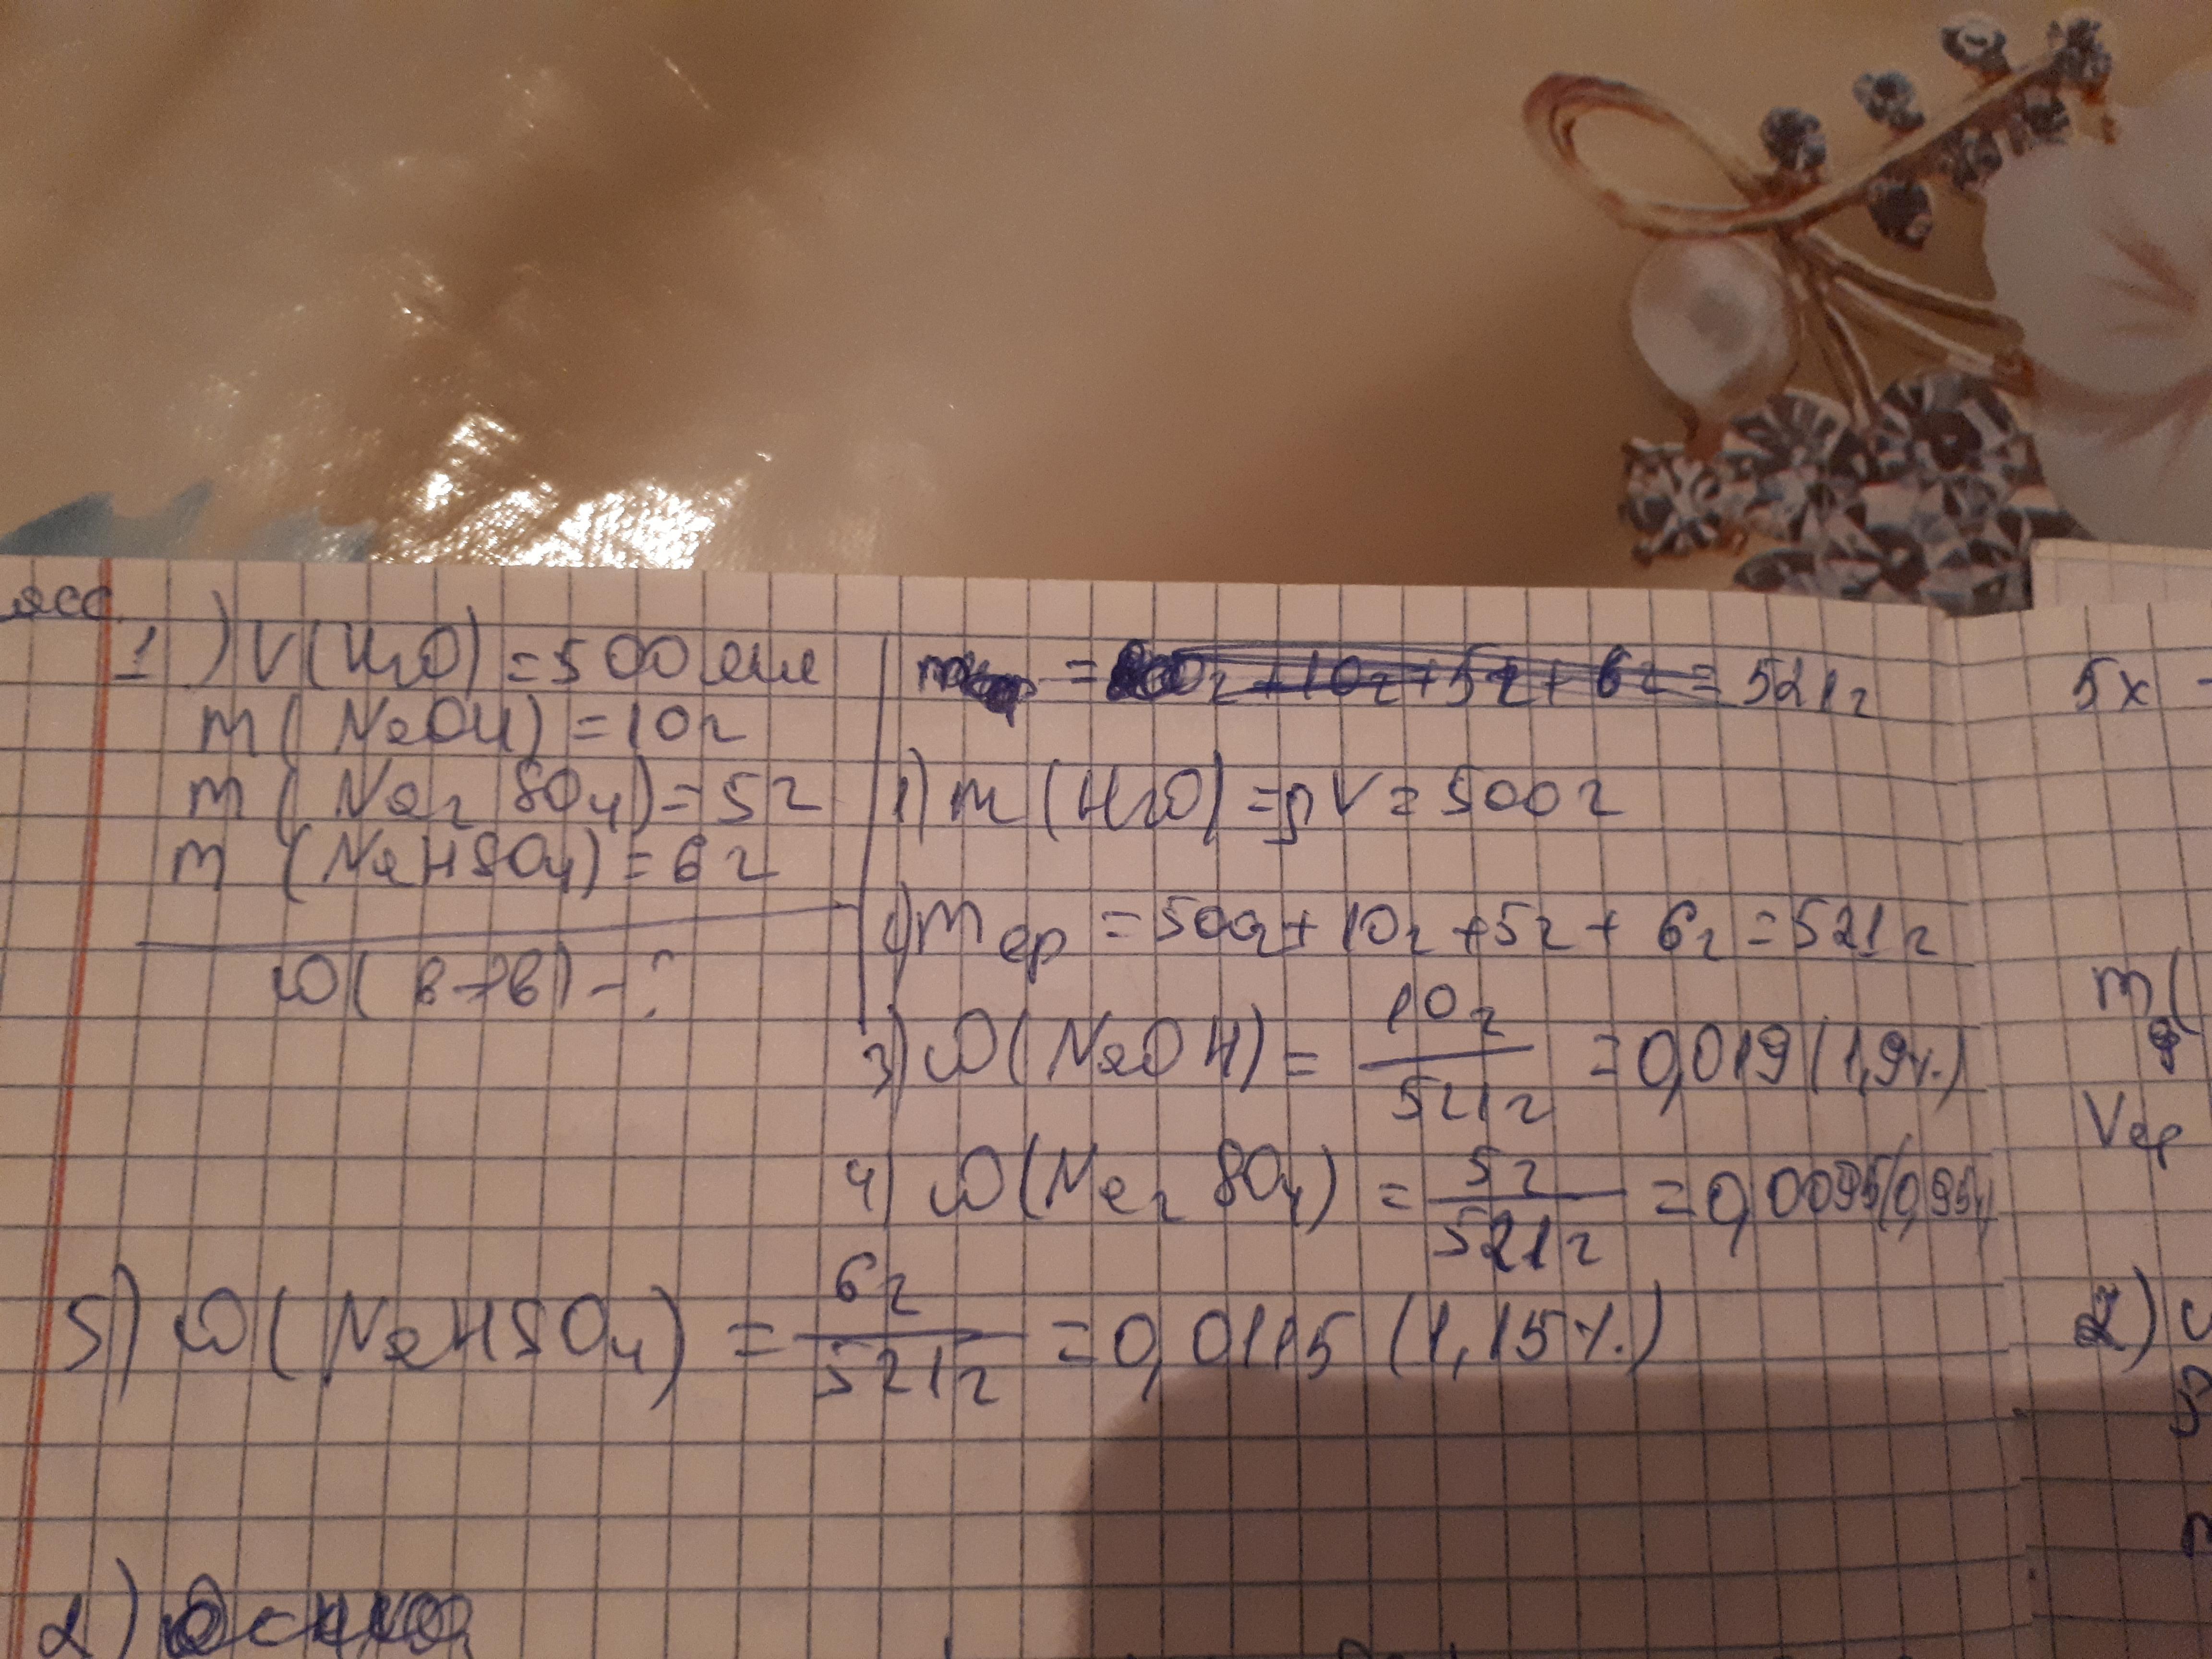 1) V(H₂O) = 500 мл
m(NaOH) = 10г
m(Na₂SO₄) = 5г
m(NaHSO₄) = 6г
ω(в-в) - ?
= 00г + 10г + 5г + 6г = 521г
1) m(H₂O) = ρV = 500г
) m ср = 500г + 10г + 5г + 6г = 521г
3) ω(NaOH) = 10г / 521г = 0,019 (1,9%)
4) ω(Na₂SO₄) = 5г / 521г = 0,0095 (0,95%
5) ω(NaHSO₄) = 6г / 521г = 0,0115 (1,15%)
2)
5x -
m(
V ср
2)